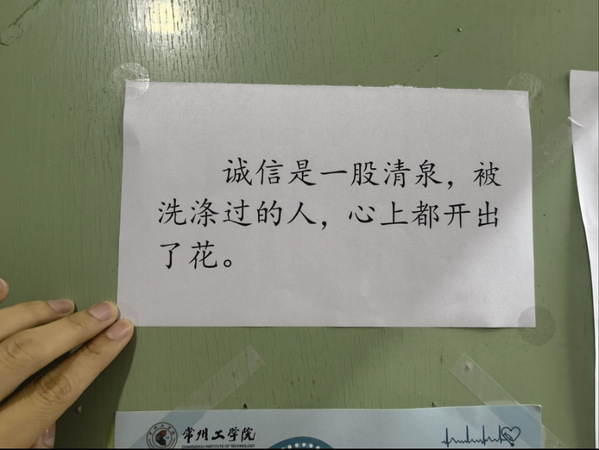 诚信是一股清泉，被
洗涤过的人，心上都开出
了花。
常州工学院
CHANGZHOU INSTITUTE OF TECHNOLOGY